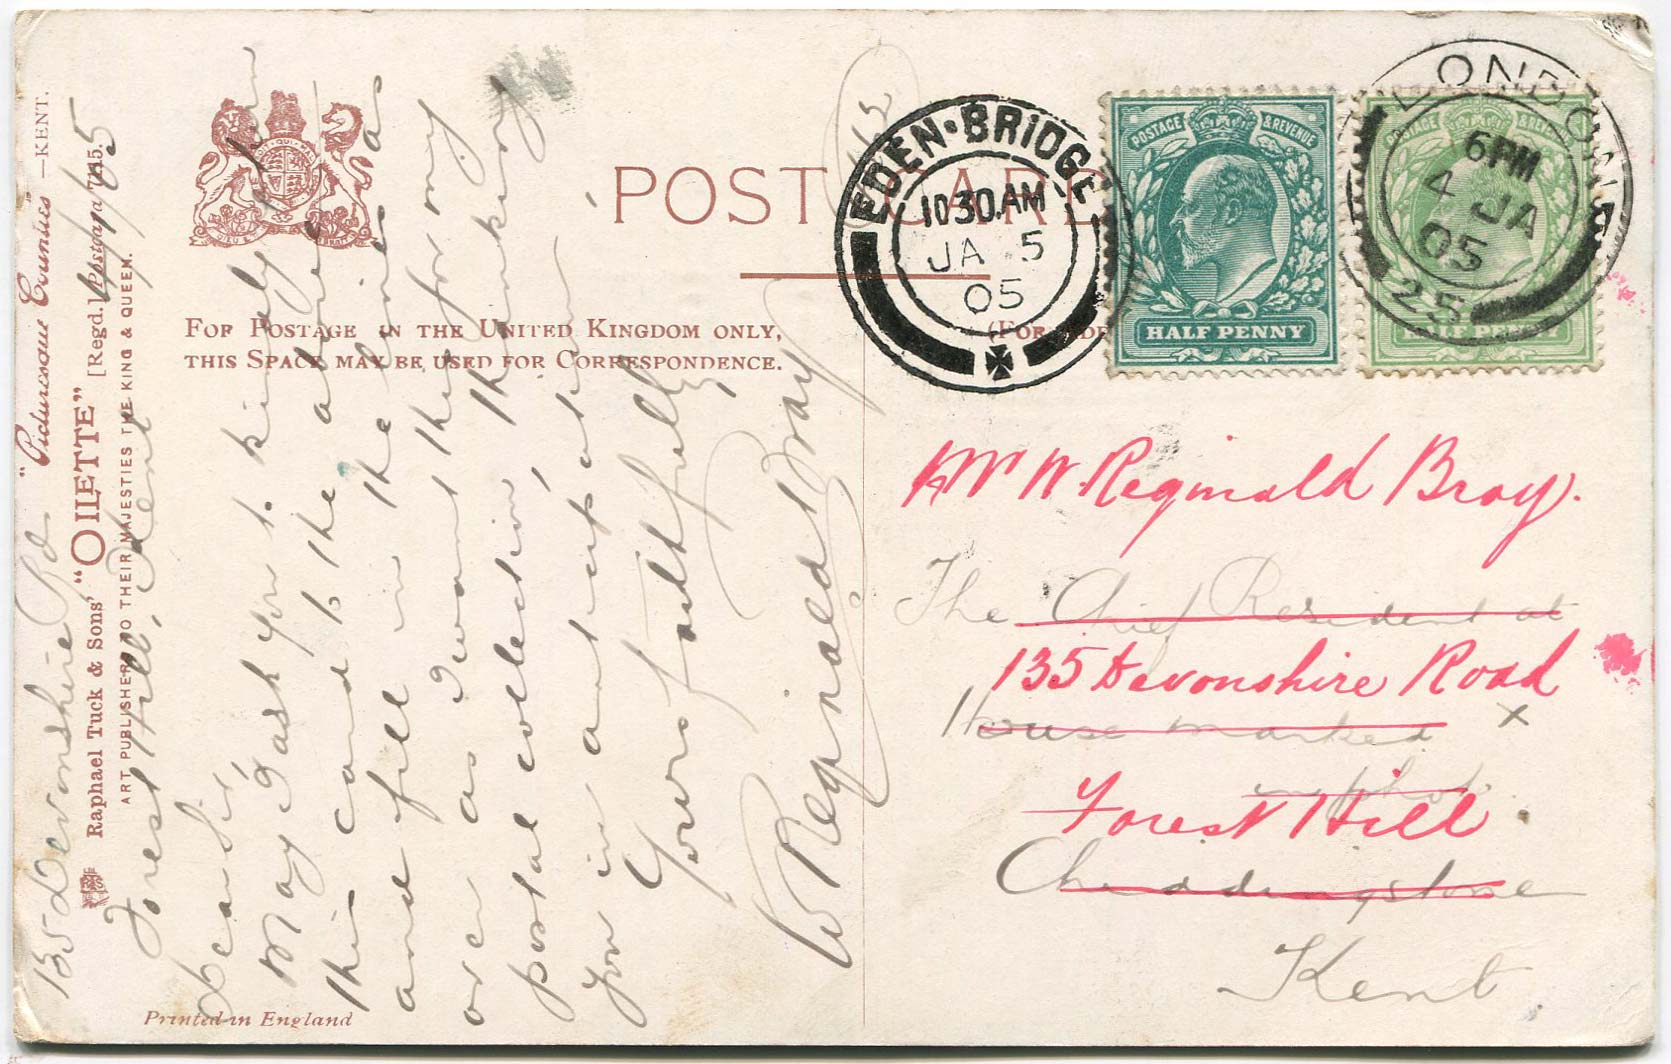 135 Devonshire Rd.
Forest Hill, Kent
4/1/05
Dear Sir,
May I ask you to kindly return
this card to the above address
and fill in the line as
over as I want this for my
postal collection, thanking
you in anticipation
Yours faithfully,
W Reginald Bray
"Picturesque Counties"—KENT.
Raphael Tuck & Sons' "OILETTE" [Regd.] Postcard 7145.
ART PUBLISHERS TO THEIR MAJESTIES THE KING & QUEEN.
Printed in England
POST CARD
FOR POSTAGE IN THE UNITED KINGDOM ONLY,
THIS SPACE MAY BE USED FOR CORRESPONDENCE.
(FOR ADD
EDEN·BRIDGE
10 30.AM
JA 5
05
POSTAGE & REVENUE
HALF PENNY
LONDON
6 PM
4 JA
05
25
POSTAGE & REVENUE
HALF PENNY
Mr W. Reginald Bray.
The Chief Resident at
135 Devonshire Road
House marked X
Forest Hill
Chiddingstone
Kent